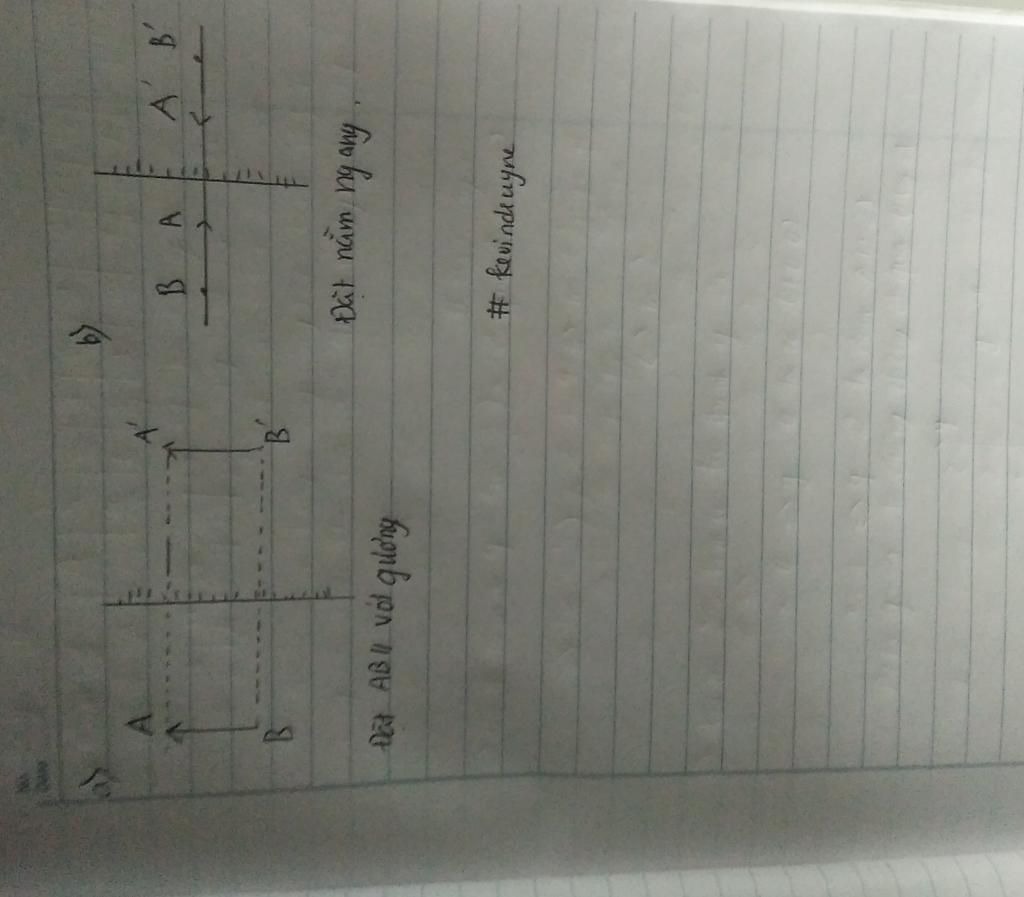 a)
A A'
B B'
Đặt AB // với gương
b)
B A A' B'
Đặt nằm ngang.
# kevindeuyne